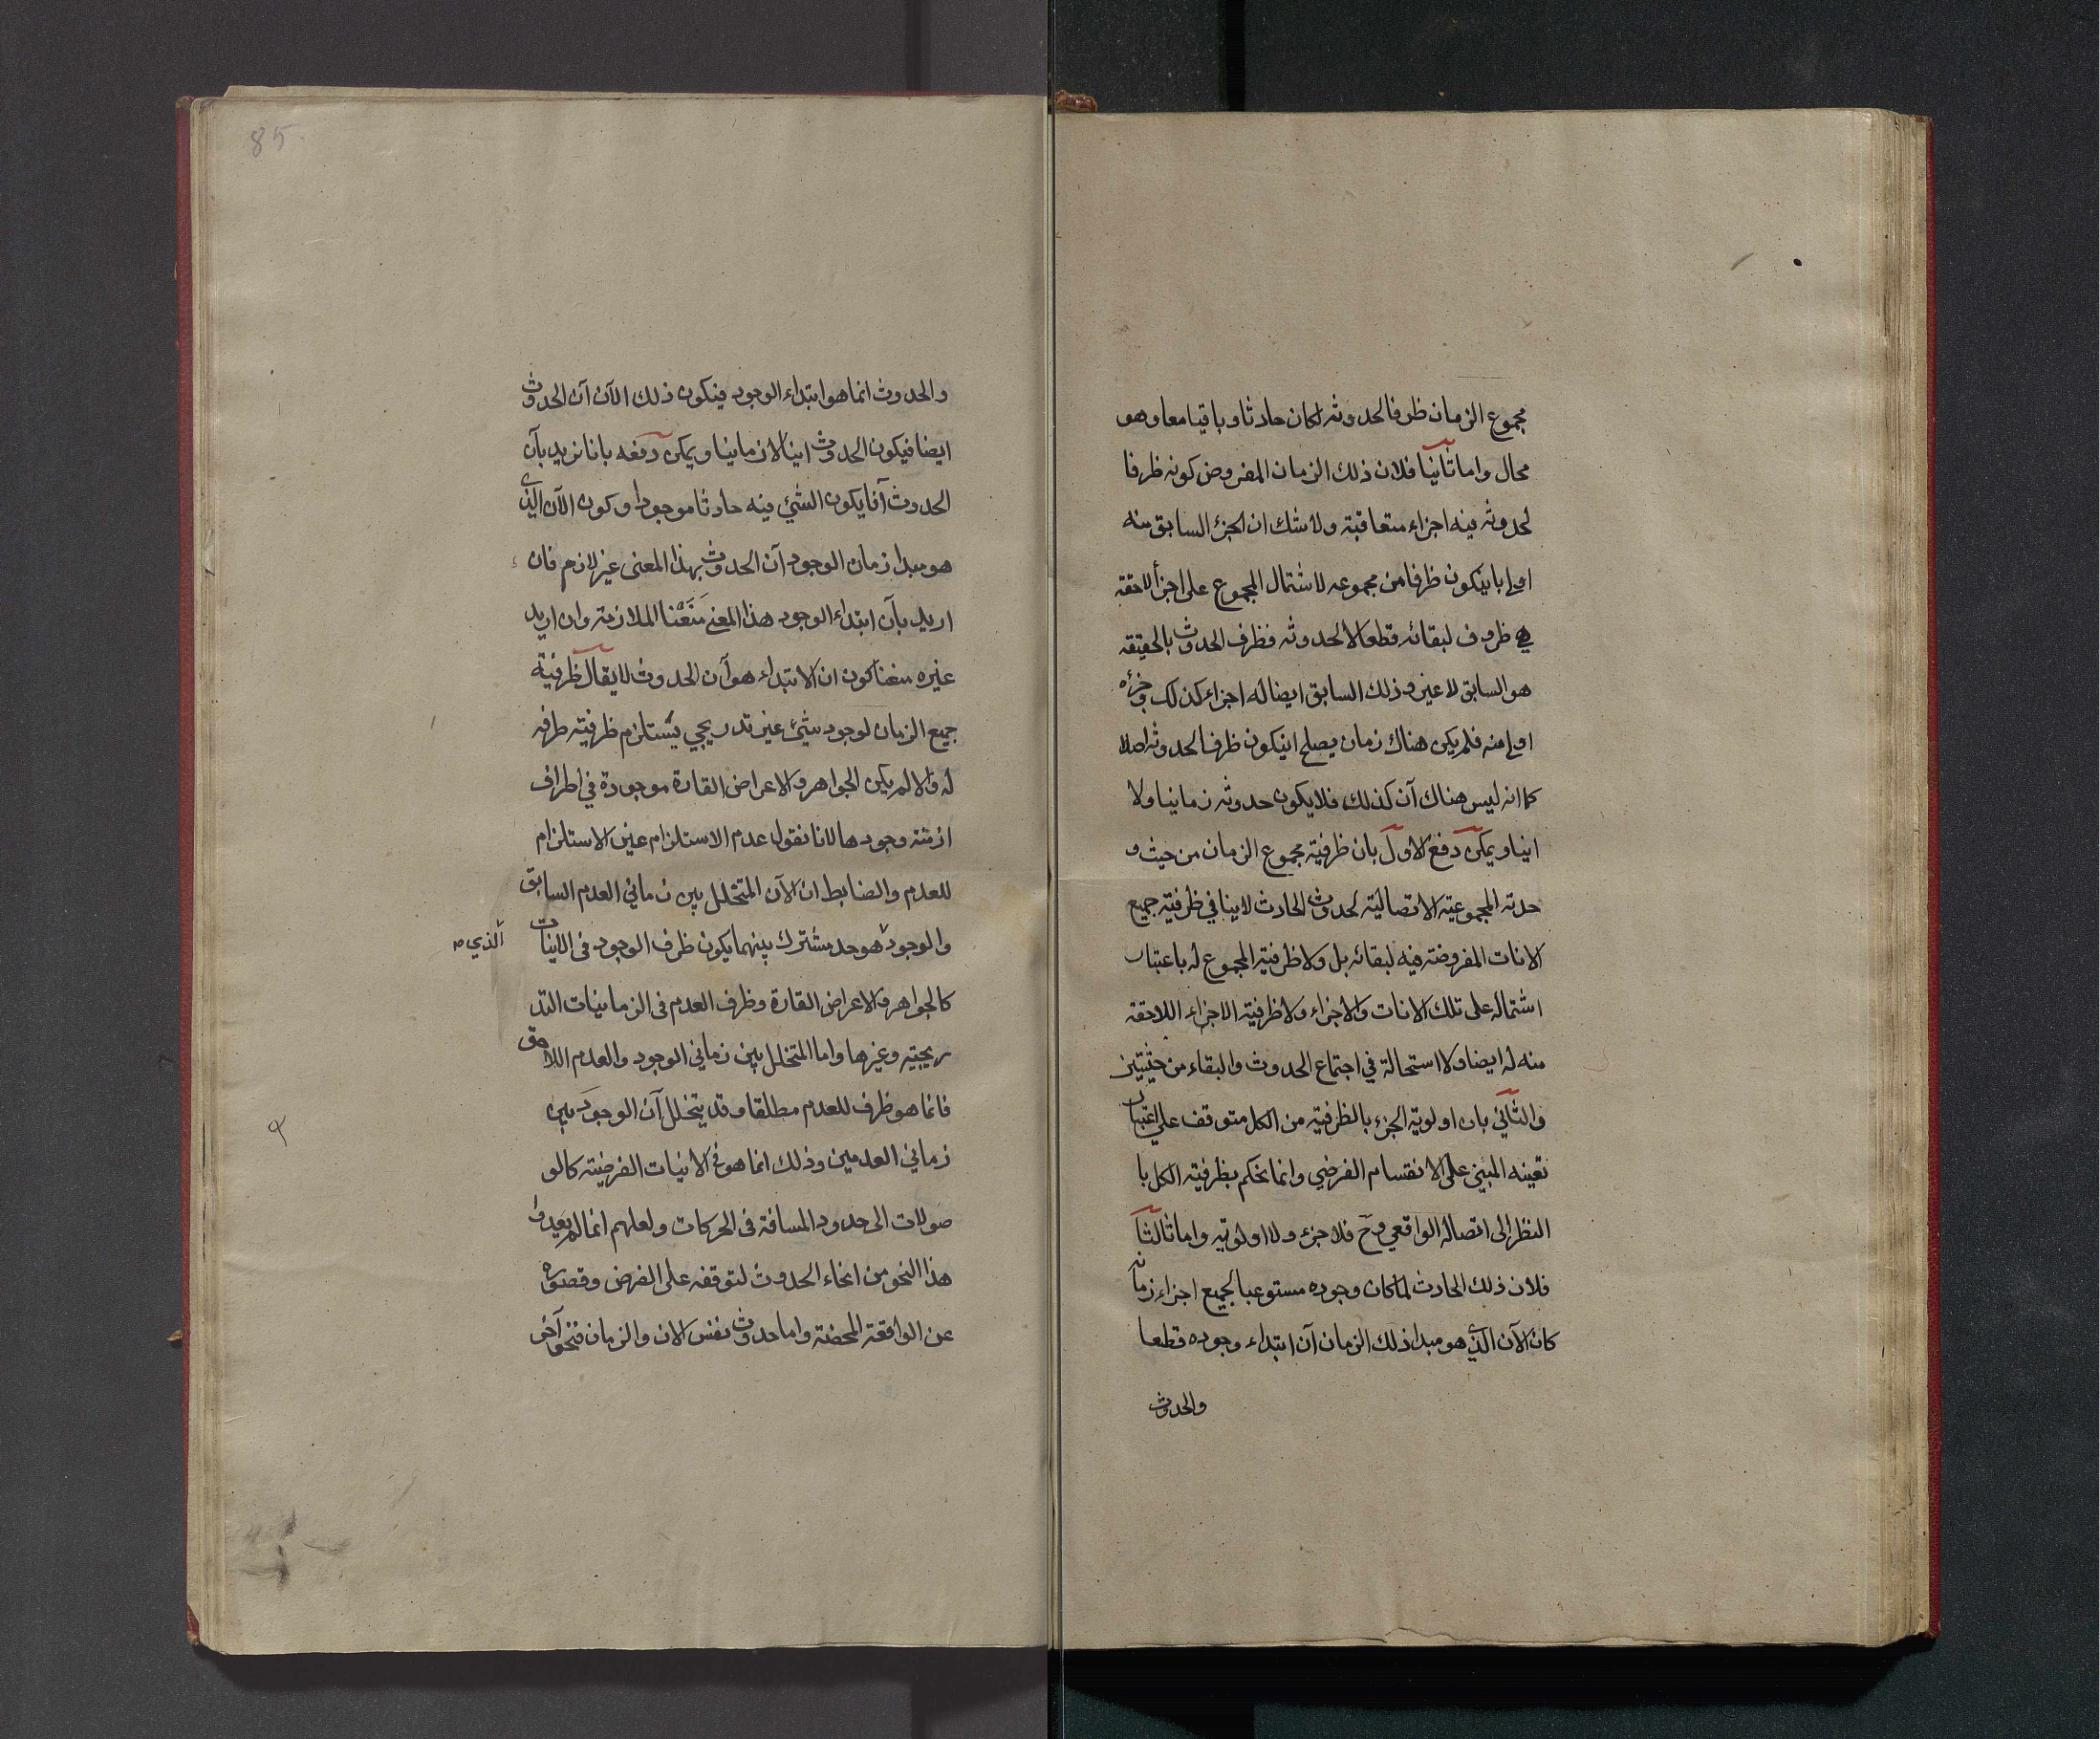 مجموع الزمان ظرفا لحدوثه لكان حادثا وباقيا معا وهو
محال واما ثانيا فلان ذلك الزمان المفروض كونه ظرفا
لحدوثه فيه اجزاء متعاقبة ولا شك ان الجزء السابق منه
اولى بان يكون ظرفا من مجموعه لاشتمال المجموع على اجزأ لاحقة
هي ظروف لبقائه قطعا لا لحدوثه فظرف الحدوث بالحقيقه
هو السابق لا غير وذلك السابق ايضا له اجزاء كذلك وجزءه
اولى منه فلم يكن هناك زمان يصلح ان يكون ظرفا لحدوثه اصلا
كما انه ليس هناك آن كذلك فلا يكون حدوثه زمانيا ولا
انيا ويمكن دفع الاول بان ظرفية مجموع الزمان من حيث و
حدته المجموعية الاتصالية لحدوث الحادث لا ينافي ظرفية جميع
الانات المفروضة فيه لبقائه بل ولا ظرفية المجموع له باعتبار
اشتماله على تلك الانات والاجزاء ولا ظرفية الاجزاء اللاحقة
منه له ايضا ولا استحالة في اجتماع الحدوث والبقاء من حيثيتين
والثاني بان اولوية الجزء بالظرفية من الكل متوقف على اعتبار
تعينه المبني على الانقسام الفرضي وانما نحكم بظرفية الكل با
النظر الى اتصاله الواقعي وح فلا جزء ولا اولوية واما ثالثا
فلان ذلك الحادث لما كان وجوده مستوعبا لجميع اجزاء زمانه
كان الآن الذي هو مبدا ذلك الزمان آن ابتداء وجوده قطعا
والحدوث
85
والحدوث انما هو ابتداء الوجود فيكون ذلك الآن آن الحدوث
ايضا فيكون الحدوث انيا لا زمانيا ويمكن دفعه بانا نريد بآن
الحدوث آنا يكون الشئ فيه حادثا موجودا وكون الآن الذي
هو مبدا زمان الوجود آن الحدوث بهذا المعنى غير لازم فان
اريد بآن ابتداء الوجود هذا المعنى مَنَعْنا الملازمة وان اريد
غيره منعنا كون ان الابتداء هو آن الحدوث لا يقال ظرفية
جميع الزمان لوجود شئ غير تدريجي يستلزم ظرفية طرفه
له والا لم يكن الجواهر والاعراض القارة موجودة في اطراف
ازمنة وجودها لانا نقول عدم الاستلزام غير الاستلزام
للعدم والضابط ان الآن المتخلل بين زماني العدم السابق
والوجود هو حد مشترك بينهما يكون ظرف الوجود في الانيات
الذي
كالجواهر والاعراض القارة وظرف العدم في الزمانيات التد
ريجية وغيرها واما المتخلل بين زماني الوجود والعدم اللاحق
فانما هو ظرف للعدم مطلقا وقد يتخلل آن الوجود بين
زماني العدمين وذلك انما هو في الانيات الفرضية كالو
صولات الى حدود المسافة في الحركات ولعلهم انما لم يعدوا
هذا النحو من انحاء الحدوث لتوقفه على الفرض وقصوره
عن الواقعة المحضة واما حدوث نفس الان والزمان فنحو آخر